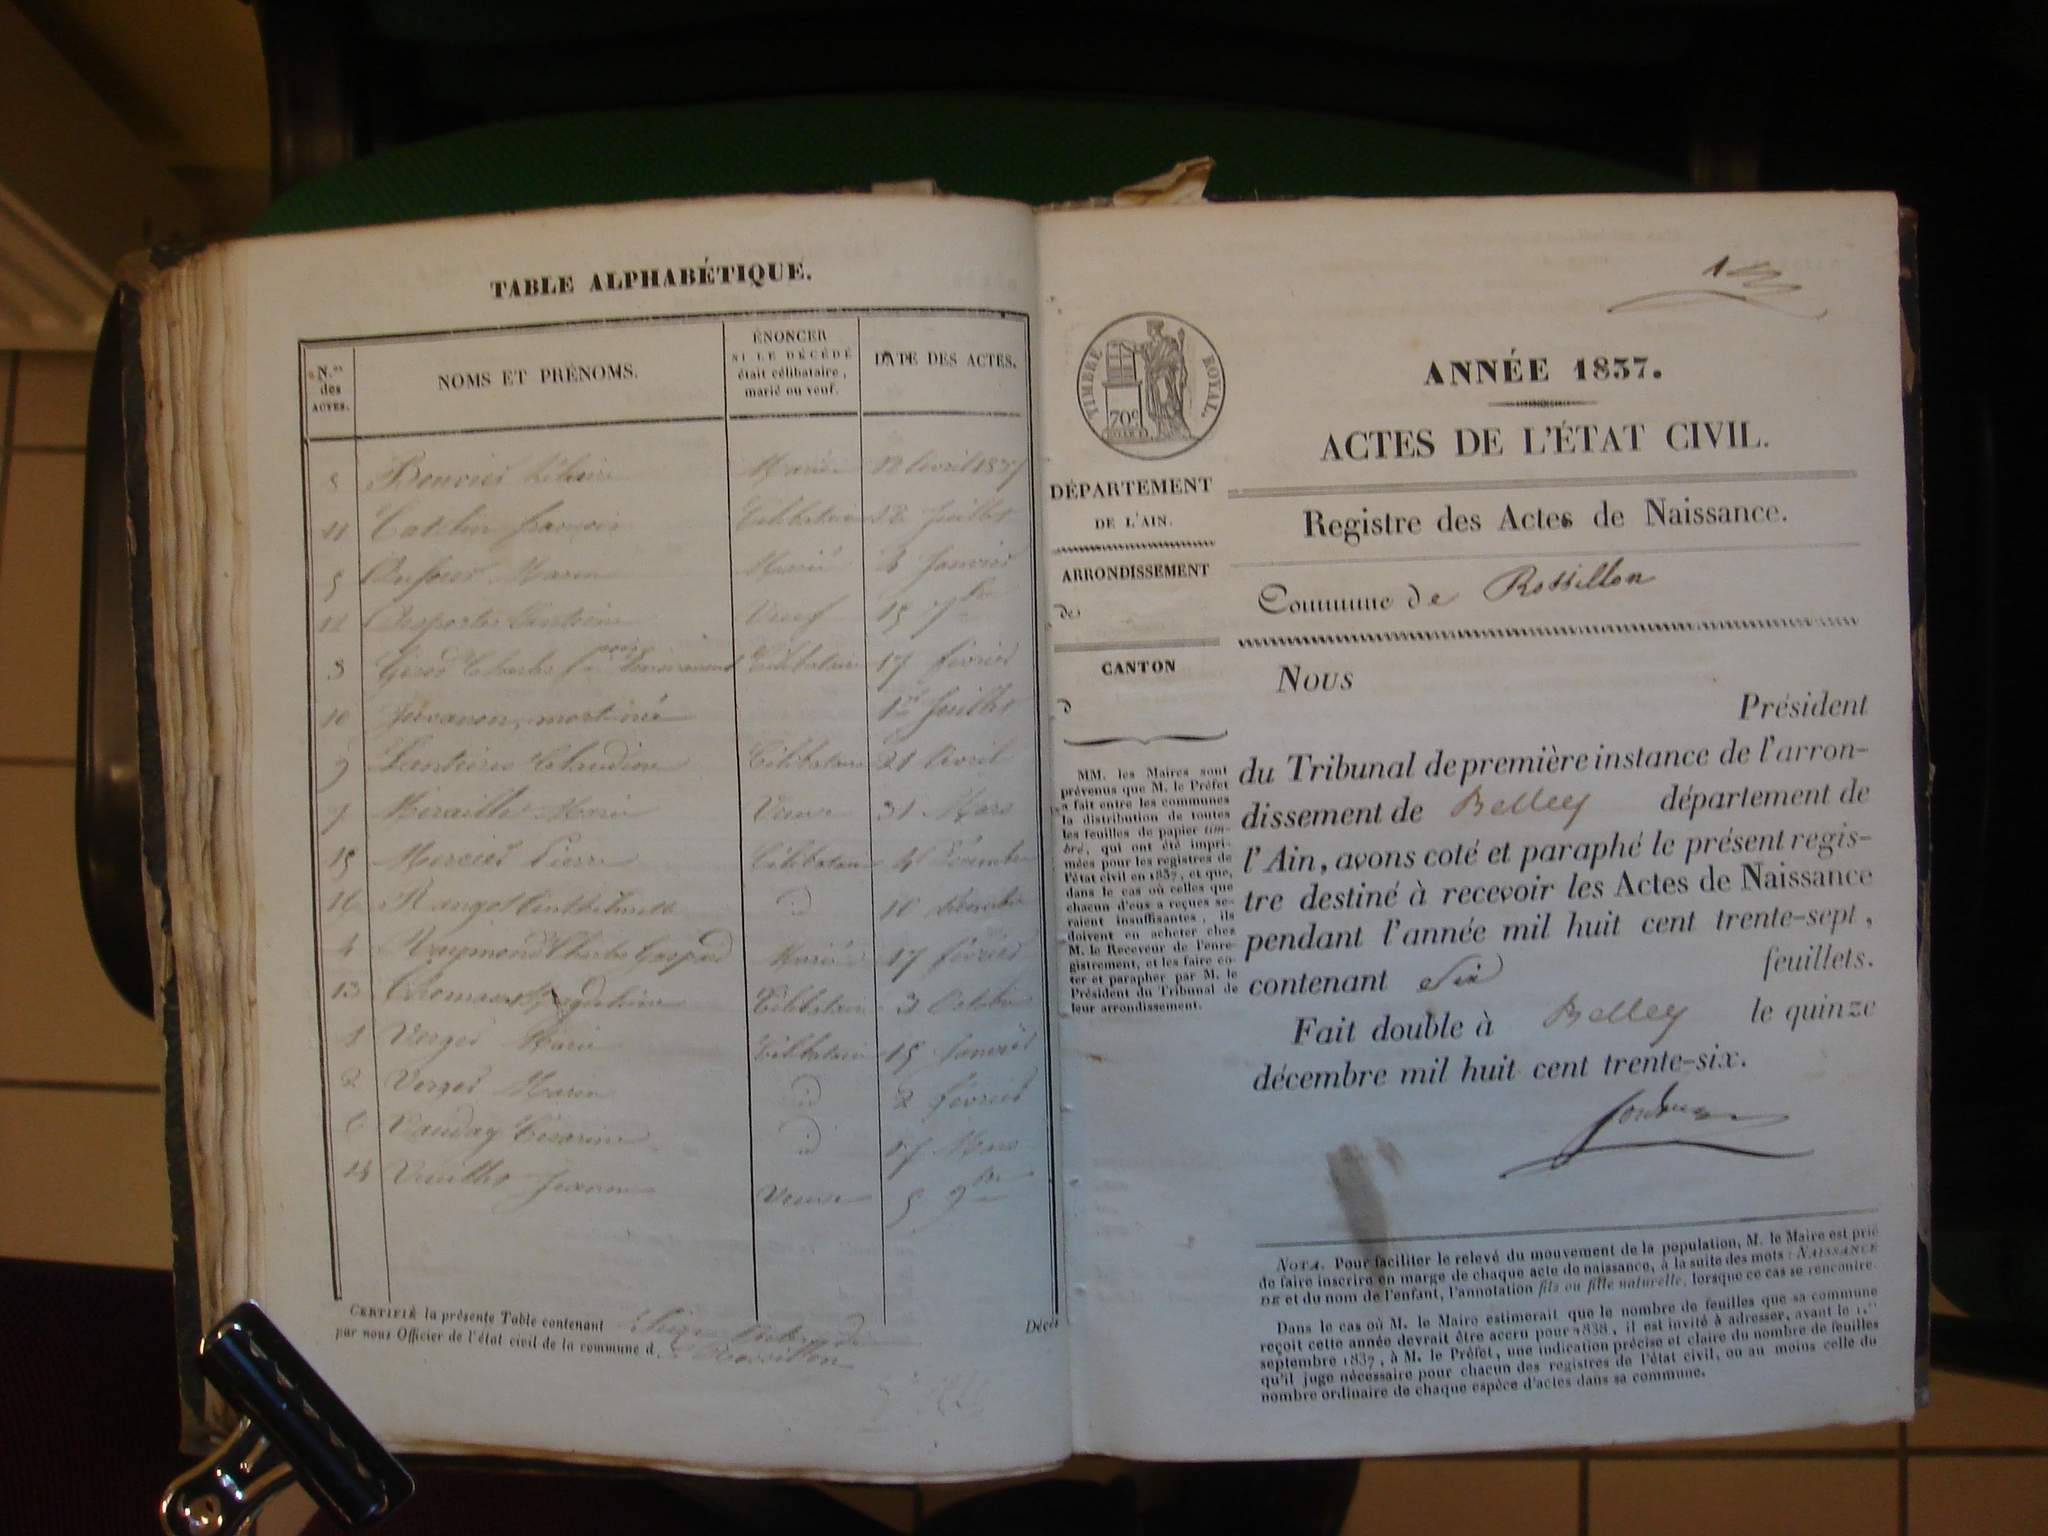 TABLE ALPHABÉTIQUE.
N.os des ACTES.
NOMS ET PRÉNOMS.
ÉNONCER
SI LE DÉCÉDÉ
était célibataire,
marié ou veuf.
DATE DES ACTES.
8 Bouvier Marié 12 avril 1837
11 Catelin françois Célibataire 12 Juillet
5 Marié Janvier
12 Desportes Veuf 15 7bre
3 Girod Charles Célibataire 17 février
10 Juvanon, mort-né 1er Juillet
9 Claudine Célibataire 21 avril
7 Miraillet Marie Veuve 31 Mars
15 Mercier Pierre Célibataire 4 Décembre
16 id 10 décembre
4 Raymond Charles Gaspard Marié 17 février
13 Thomas Magdeleine Célibataire 3 Octobre
1 Verger Marie Célibataire 15 Janvier
2 Verger Marie id 2 février
6 Vauday id 17 Mars
14 Jeanne Veuve 5 9bre
CERTIFIÉ la présente Table contenant Seize Décès
par nous Officier de l'état civil de la commune d e Rossillon
1
TIMBRE ROYAL.
70c
DÉPARTEMENT
DE L'AIN.
ARRONDISSEMENT
de
CANTON
d
MM. les Maires sont
prévenus que M. le Préfet
a fait entre les communes
la distribution de toutes
les feuilles de papier tim-
bré, qui ont été impri-
mées pour les registres de
l'état civil en 1837, et que,
dans le cas où celles que
chacun d'eux a reçues se-
raient insuffisantes, ils
doivent en acheter chez
M. le Receveur de l'enre-
gistrement, et les faire co-
ter et parapher par M. le
Président du Tribunal de
leur arrondissement.
ANNÉE 1837.
ACTES DE L'ÉTAT CIVIL.
Registre des Actes de Naissance.
Commune de Rossillon
Nous
Président
du Tribunal de première instance de l'arron-
dissement de Belley département de
l'Ain, avons coté et paraphé le présent regis-
tre destiné à recevoir les Actes de Naissance
pendant l'année mil huit cent trente-sept,
contenant Six feuillets.
Fait double à Belley le quinze
décembre mil huit cent trente-six.
NOTA. Pour faciliter le relevé du mouvement de la population, M. le Maire est prié
de faire inscrire en marge de chaque acte de naissance, à la suite des mots : NAISSANCE
DE et du nom de l'enfant, l'annotation fils ou fille naturelle, lorsque ce cas se rencontre.
Dans le cas où M. le Maire estimerait que le nombre de feuilles que sa commune
reçoit cette année devrait être accru pour 1838, il est invité à adresser, avant le 1.er
septembre 1837, à M. le Préfet, une indication précise et claire du nombre de feuilles
qu'il juge nécessaire pour chacun des registres de l'état civil, ou au moins celle du
nombre ordinaire de chaque espèce d'actes dans sa commune.